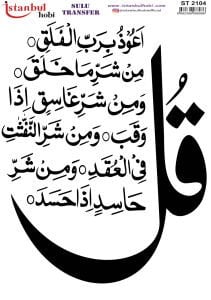 istanbul
hobi
SULU
TRANSFER
www.istanbulhobi.com
ST 2104
قُلْ
اَعُوذُ بِرَبِّ الْفَلَقِۙ
مِنْ شَرِّ مَا خَلَقَۙ
وَمِنْ شَرِّ غَاسِقٍ اِذَا
وَقَبَۙ وَمِنْ شَرِّ النَّفَّٰثَٰتِ
فِي الْعُقَدِۙ وَمِنْ شَرِّ
حَاسِدٍ اِذَا حَسَدَ